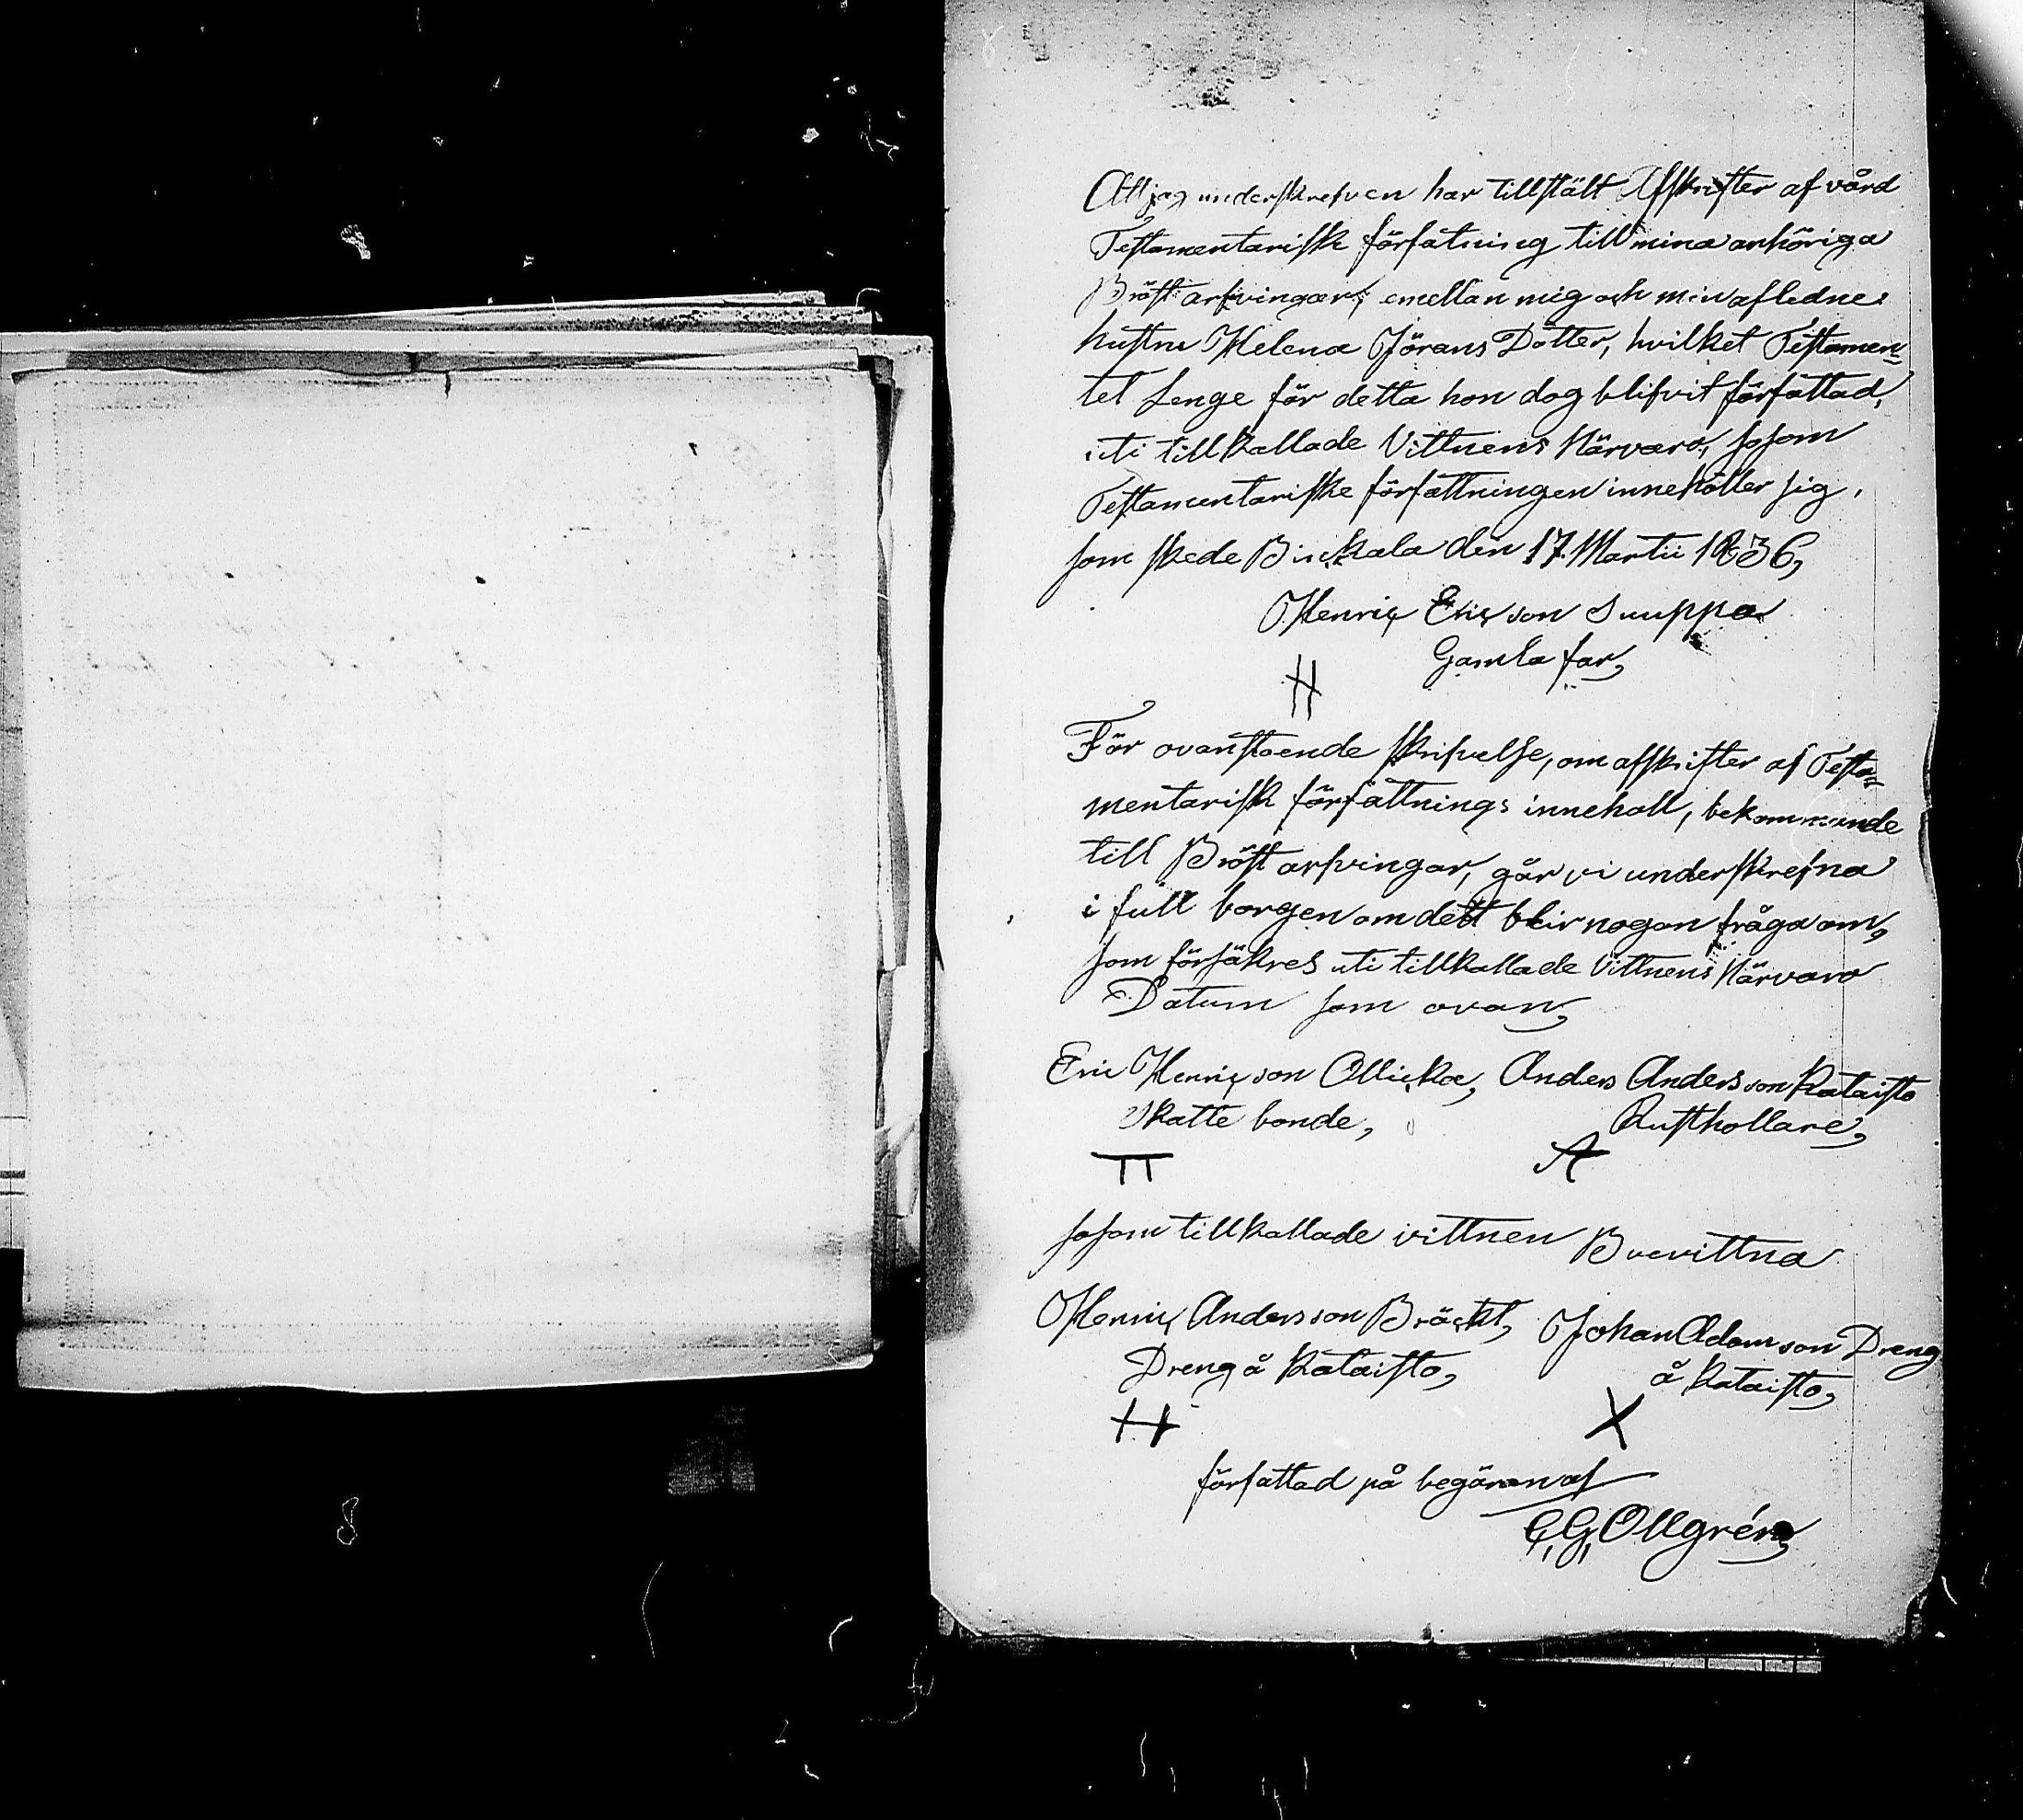 Att jag underskrefven har tillstält Afskrifter af vård
Testamentariske förfatning till mina anhöriga
Bröst arfvingar, emellan mig och min afledne
hustru Helena Jörans Dotter, hvilket Testamen-
tet Lenge för detta hon dog blifvit författad,
uti tillkallade Vittnens Närvaro, sosom
Testamentariske författningen innehåller sig,
som skede Birkala den 17 Martii 1836,
Henric Ericson Suuppa
Gamla far,
H
För ovanstoende skrifvelse, om afskrifter af Testa-
mentarisk författnings innehall, bekommande
till Bröst arfvingar, går vi underskrefna
i full borgen om dett blir nogon fråga om,
som försäkres uti tillkallade Vittnens Närvaro
Datum som ovan,
Eric Henricson Ollicka, Anders Andersson Kataisto
Skatte bonde, Rusthollare,
A
sosom tillkallade vittnen Bvevittna
Henric Andersson Bräckt, Johan Adamsson Dreng
Dreng å Kataisto, å Kataisto,
H X
författad på begäran af
G. G. Ollgrén,
8